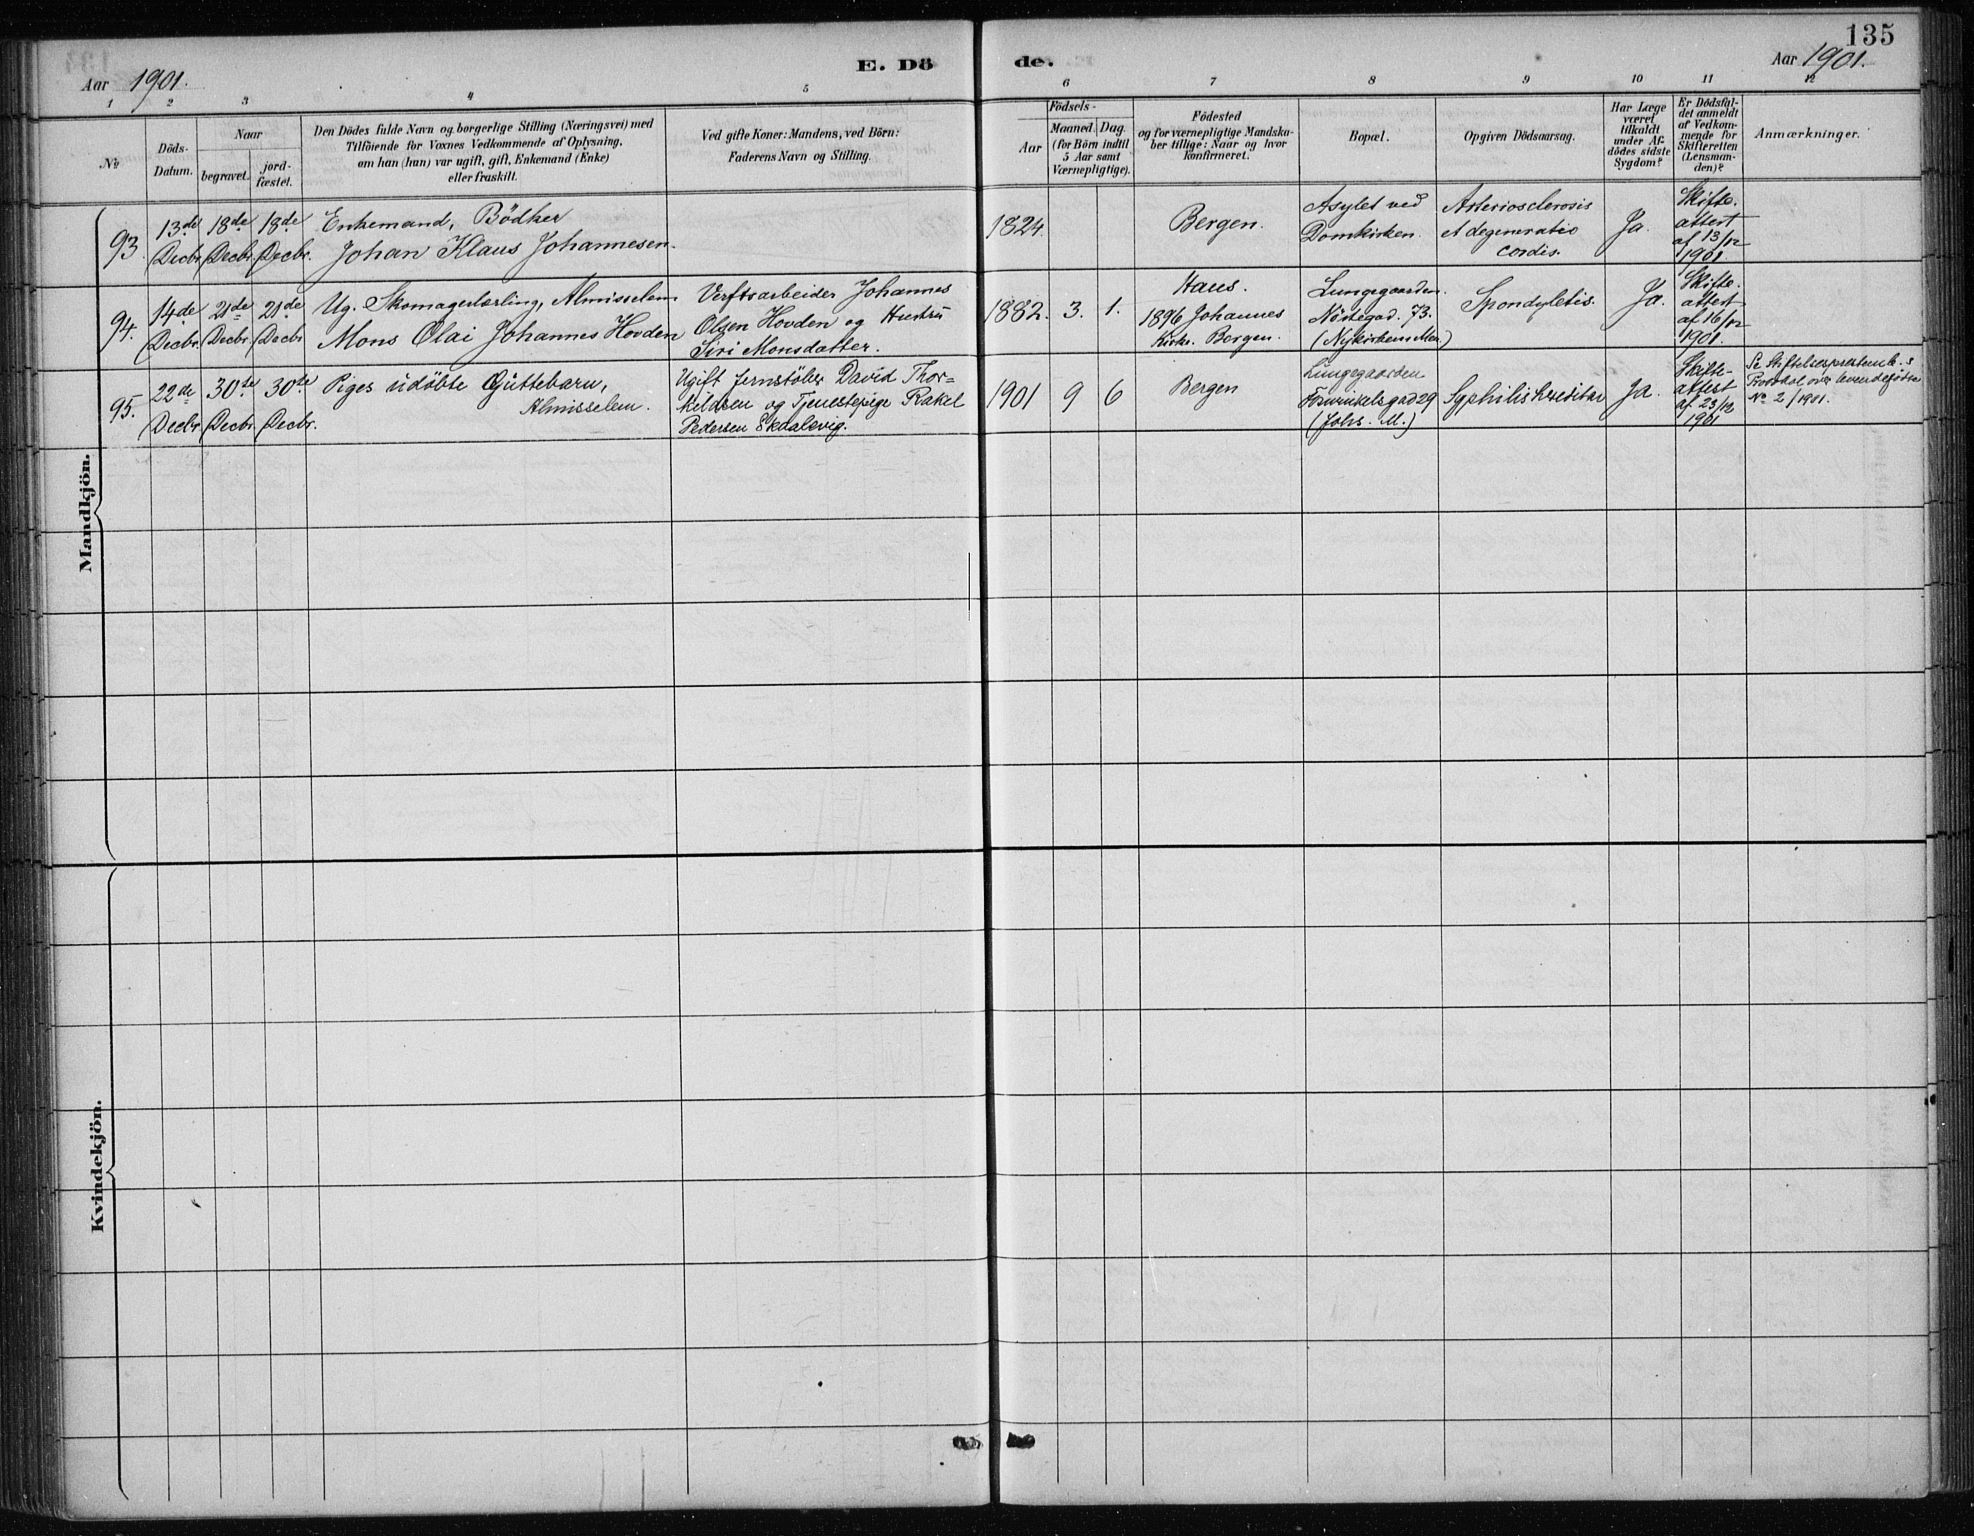 135
Aar 1901.
E. Dö
de.
Aar 1901.
1 2 3 4 5 6 7 8 9 10 11 12
№
Döds-
Datum.
Naar
begravet.
jord-
fæstet.
Den Dödes fulde Navn og borgerlige Stilling (Næringsvei) med
Tilföiende for Voxnes Vedkommende af Oplysning,
om han (hun) var ugift, gift, Enkemand (Enke)
eller fraskilt.
Ved gifte Koner: Mandens, ved Börn:
Faderens Navn og Stilling.
Födsels-
Aar
Maaned. Dag.
(for Börn indtil
5 Aar samt
Værnepligtige).
Födested
og for værnepligtige Mandska-
ber tillige: Naar og hvor
konfirmeret.
Bopæl.
Opgiven Dödsaarsag.
Har Læge
været
tilkaldt
under Af-
dödes sidste
Sygdom?
Er Dödsfal-
det anmeldt
af Vedkom-
mende for
Skifteretten
(Lensman-
den)?
Anmærkninger.
Mandkjön.
93.
13de
Decbr.
18de
Decbr.
18de
Decbr.
Enkemand, Bödker
Johan Klaus Johannesen.
1824.
Bergen.
Asylet ved
Domkirken.
Arteriosclerosis
et degeneratio
cordis.
Ja.
Skifte.
attest
af 13/12
1901
94.
14de
Decbr.
21de
Decbr.
21de
Decbr
Ug. Skomagerlærling, Almisselem
Mons Olai Johannes Hovden
Verftsarbeider Johannes
Olsen Hovden og Hustru
Siri Monsdatter.
1882. 3. 1.
Haus.
1896 Johannes
Kirke. Bergen.
Lungegaarden.
Nöstegad. 73.
(Nykirkens Men.)
Spondyletis.
Ja.
Skifte.
attest
af 16/12
1901.
95.
22de
Decbr
30te
Decbr.
30te
Decbr.
Piges udöbte Guttebarn,
Almisselem.
Ugift Jernstöber David Thor-
kildsen og Tjenestepige Rakel
Pedersen Skaalevig.
1901 9 6
Bergen
Lungegaarden
29
(Johs. M.)
Syphilis hereditar
Ja.
Skifte-
attest
af 23/12
1901
Se Stiftelsesprestembs
Protokol over levendefödte
№ 2/1901.
Kvindekjön.